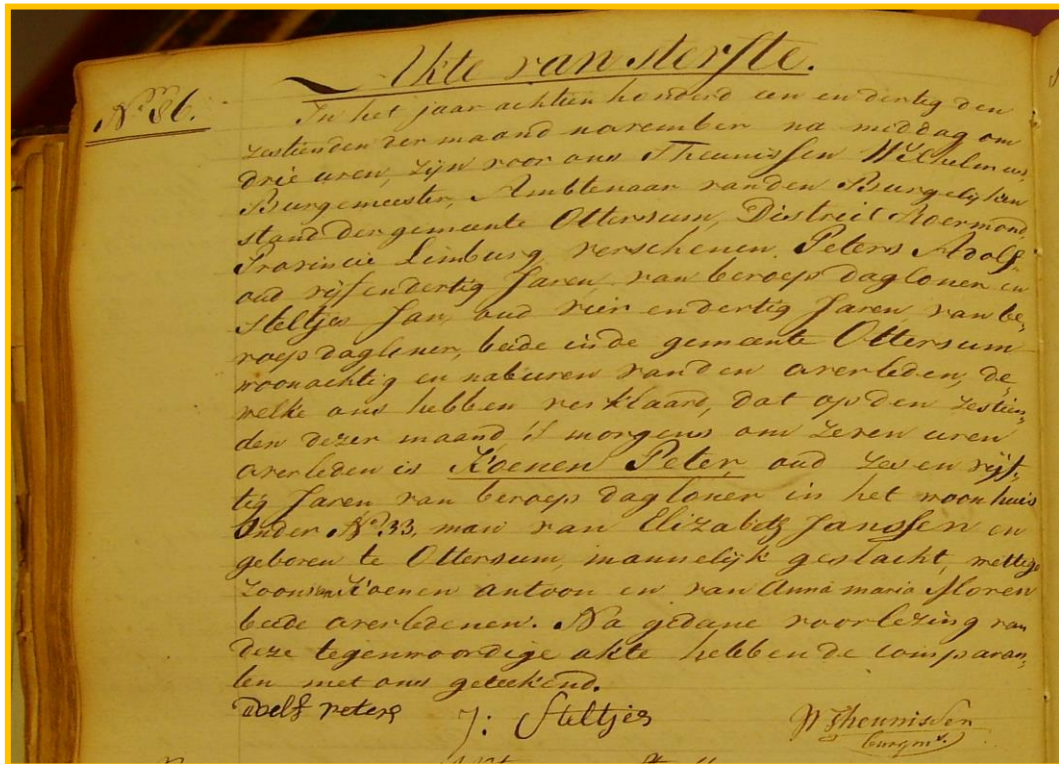 Akte van sterfte.
N° 86.
In het jaar achtien honderd een en dertig den
zestienden der maand november na middag om
drie uren, zijn voor ons Theunissen Wilhelmus,
Burgemeester, Ambtenaar van den Burgelijken
stand der gemeente Ottersum, District Roermond,
Provincie Limburg verschenen Peters Adolf
oud vijf en dertig Jaren van beroep dagloner en
Steltjes Jan, oud vier en dertig Jaren van be,
roep dagloner, beide in de gemeente Ottersum
woonachtig en naburen van den overleden, de
welke ons hebben verklaard, dat op den zestien,
den dezer maand 's morgens om zeven uren
overleden is Koenen Peter, oud zes en vijf,
tig Jaren van beroep dagloner in het woonhuis
Onder N° 33, man van Elizabeth Janssen en
geboren te Ottersum, mannelijk geslacht, wettige
zoon van Koenen antoon en van Anna maria
beide overledenen. Na gedane voorlezing van
deze tegenwoordige akte hebben de comparan,
ten met ons geteekend.
Adolf peters J: Steltjes W Theunissen
burgmr.